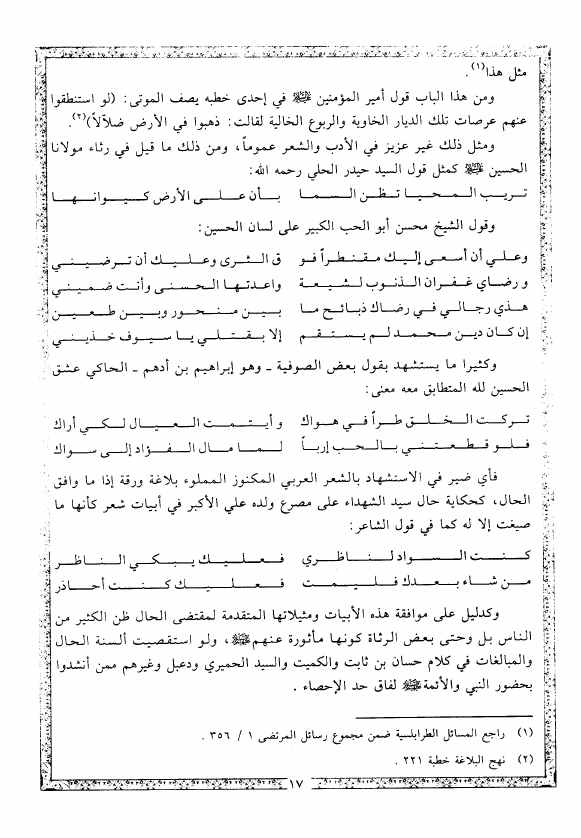 مثل هذا(١).
ومن هذا الباب قول أمير المؤمنين ﷺ في إحدى خطبه يصف الموتى: (لو استنطقوا
عنهم عرصات تلك الديار الخاوية والربوع الخالية لقالت: ذهبوا في الأرض ضلّالاً)(٢).
ومثل ذلك غير عزيز في الأدب والشعر عموماً، ومن ذلك ما قيل في رثاء مولانا
الحسين ﷺ كمثل قول السيد حيدر الحلي رحمه الله:
تريب المحيا تظن السما بأن على الأرض كيوانها
وقول الشيخ محسن أبو الحب الكبير على لسان الحسين:
وعلي أن أسعى إليك مقنطراً فو ق الثرى وعليك أن ترضيني
ورضاي غفران الذنوب لشيعة واعدتها الحسنى وأنت ضميني
هذي رجالي في رضاك ذبائح ما بين منحور وبين طعين
إن كان دين محمد لم يستقم إلا بقتلي يا سيوف خذيني
وكثيرا ما يستشهد بقول بعض الصوفية - وهو إبراهيم بن أدهم - الحاكي عشق
الحسين لله المتطابق معه معنى:
تركت الخلق طراً في هواك وأيتمت العيال لكي أراك
فلو قطعتني بالحب إرباً لما مال الفؤاد إلى سواك
فأي ضير في الاستشهاد بالشعر العربي المكنوز المملوء بلاغة ورقة إذا ما وافق
الحال، كحكاية حال سيد الشهداء على مصرع ولده علي الأكبر في أبيات شعر كأنها ما
صيغت إلا له كما في قول الشاعر:
كنت السواد لناظري فعليك يبكي الناظر
من شاء بعدك فليمت فعليك كنت أحاذر
وكدليل على موافقة هذه الأبيات ومثيلاتها المتقدمة لمقتضى الحال ظن الكثير من
الناس بل وحتى بعض الرثاة كونها مأثورة عنهم ﷺ، ولو استقصيت ألسنة الحال
والمبالغات في كلام حسان بن ثابت والكميت والسيد الحميري ودعبل وغيرهم ممن أنشدوا
بحضور النبي والأئمة ﷺ لفاق حد الإحصاء.
(١) راجع المسائل الطرابلسية ضمن مجموع رسائل المرتضى ١ / ٣٥٦.
(٢) نهج البلاغة خطبة ٢٢١.
١٧